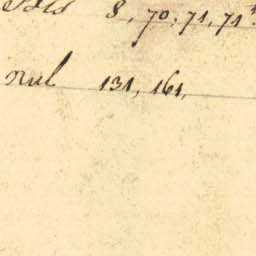 8, 70, 71, 71
nul 131, 161,